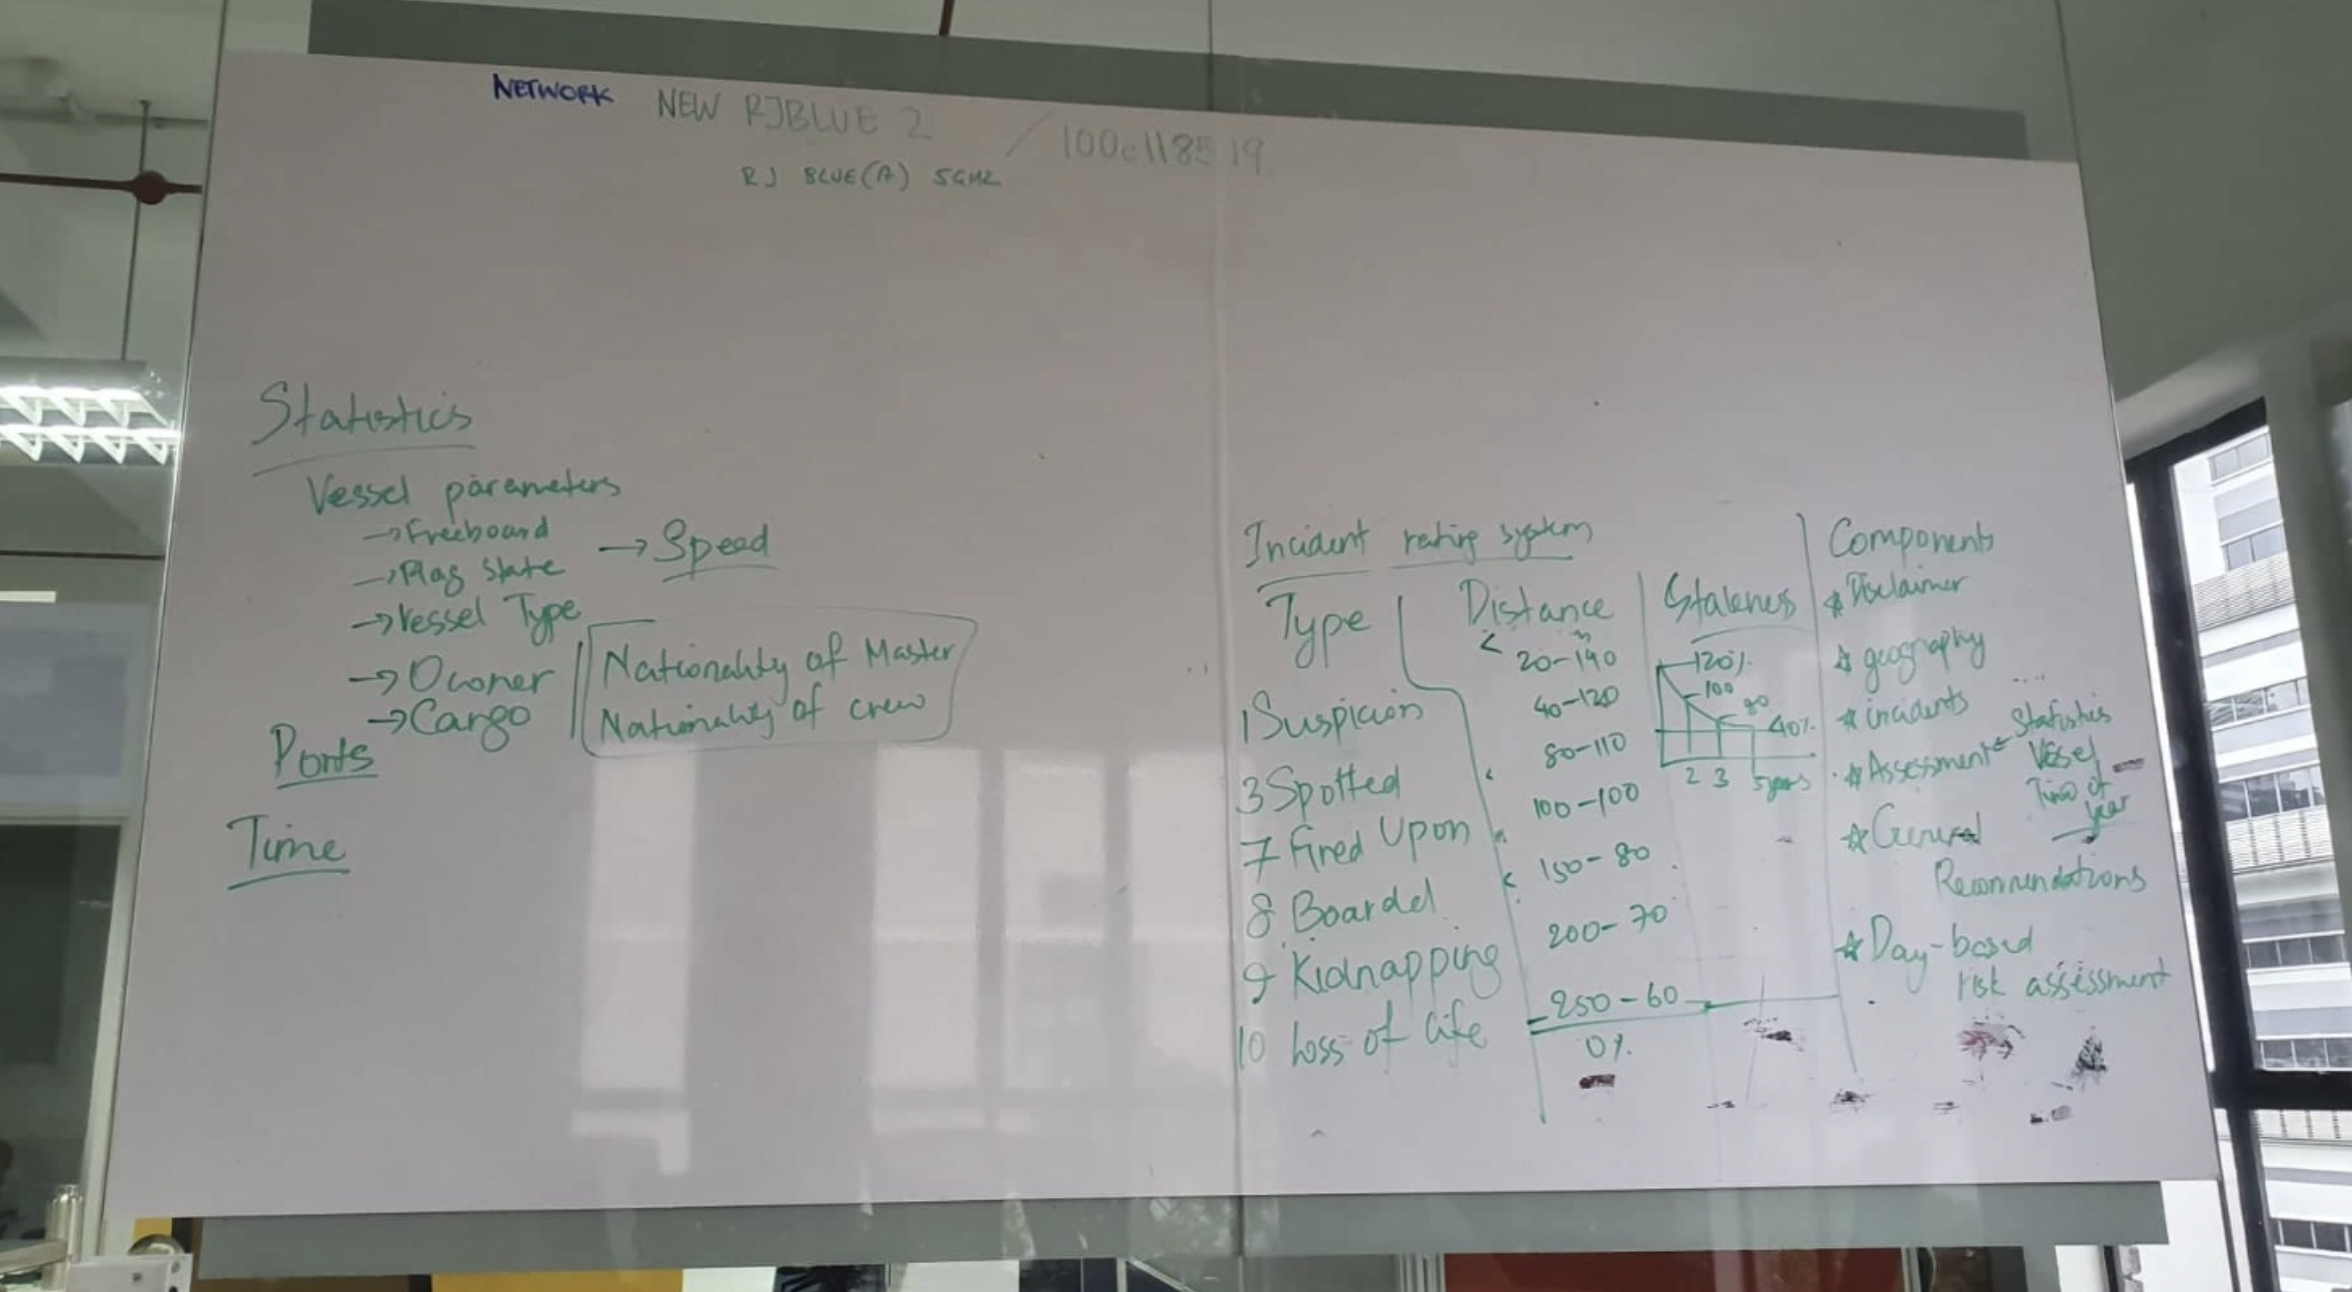 NETWORK NEW RJBLUE 2 / 100c118519
RJ BLUE(A) 5GHZ
Statistics
Vessel parameters
→Freeboard
→Flag State
→Speed
→Vessel Type
→Owner
→Cargo
Nationality of Master
Nationality of crew
Ports
Time
Incident rating system
Type
1 Suspicion
3 Spotted
7 Fired Upon
8 Boarded
9 Kidnapping
10 Loss of life
Distance
< 20-140
40-120
80-110
100-100
150-80
200-70
250-60
0%
Staleness
120%
100
80
40%
2 3 5 years
Components
☆ Disclaimer
☆ geography
☆ incidents
☆ Assessment
Statistics
Vessel
Time of
year
☆ General
Recommendations
☆ Day-based
risk assessment